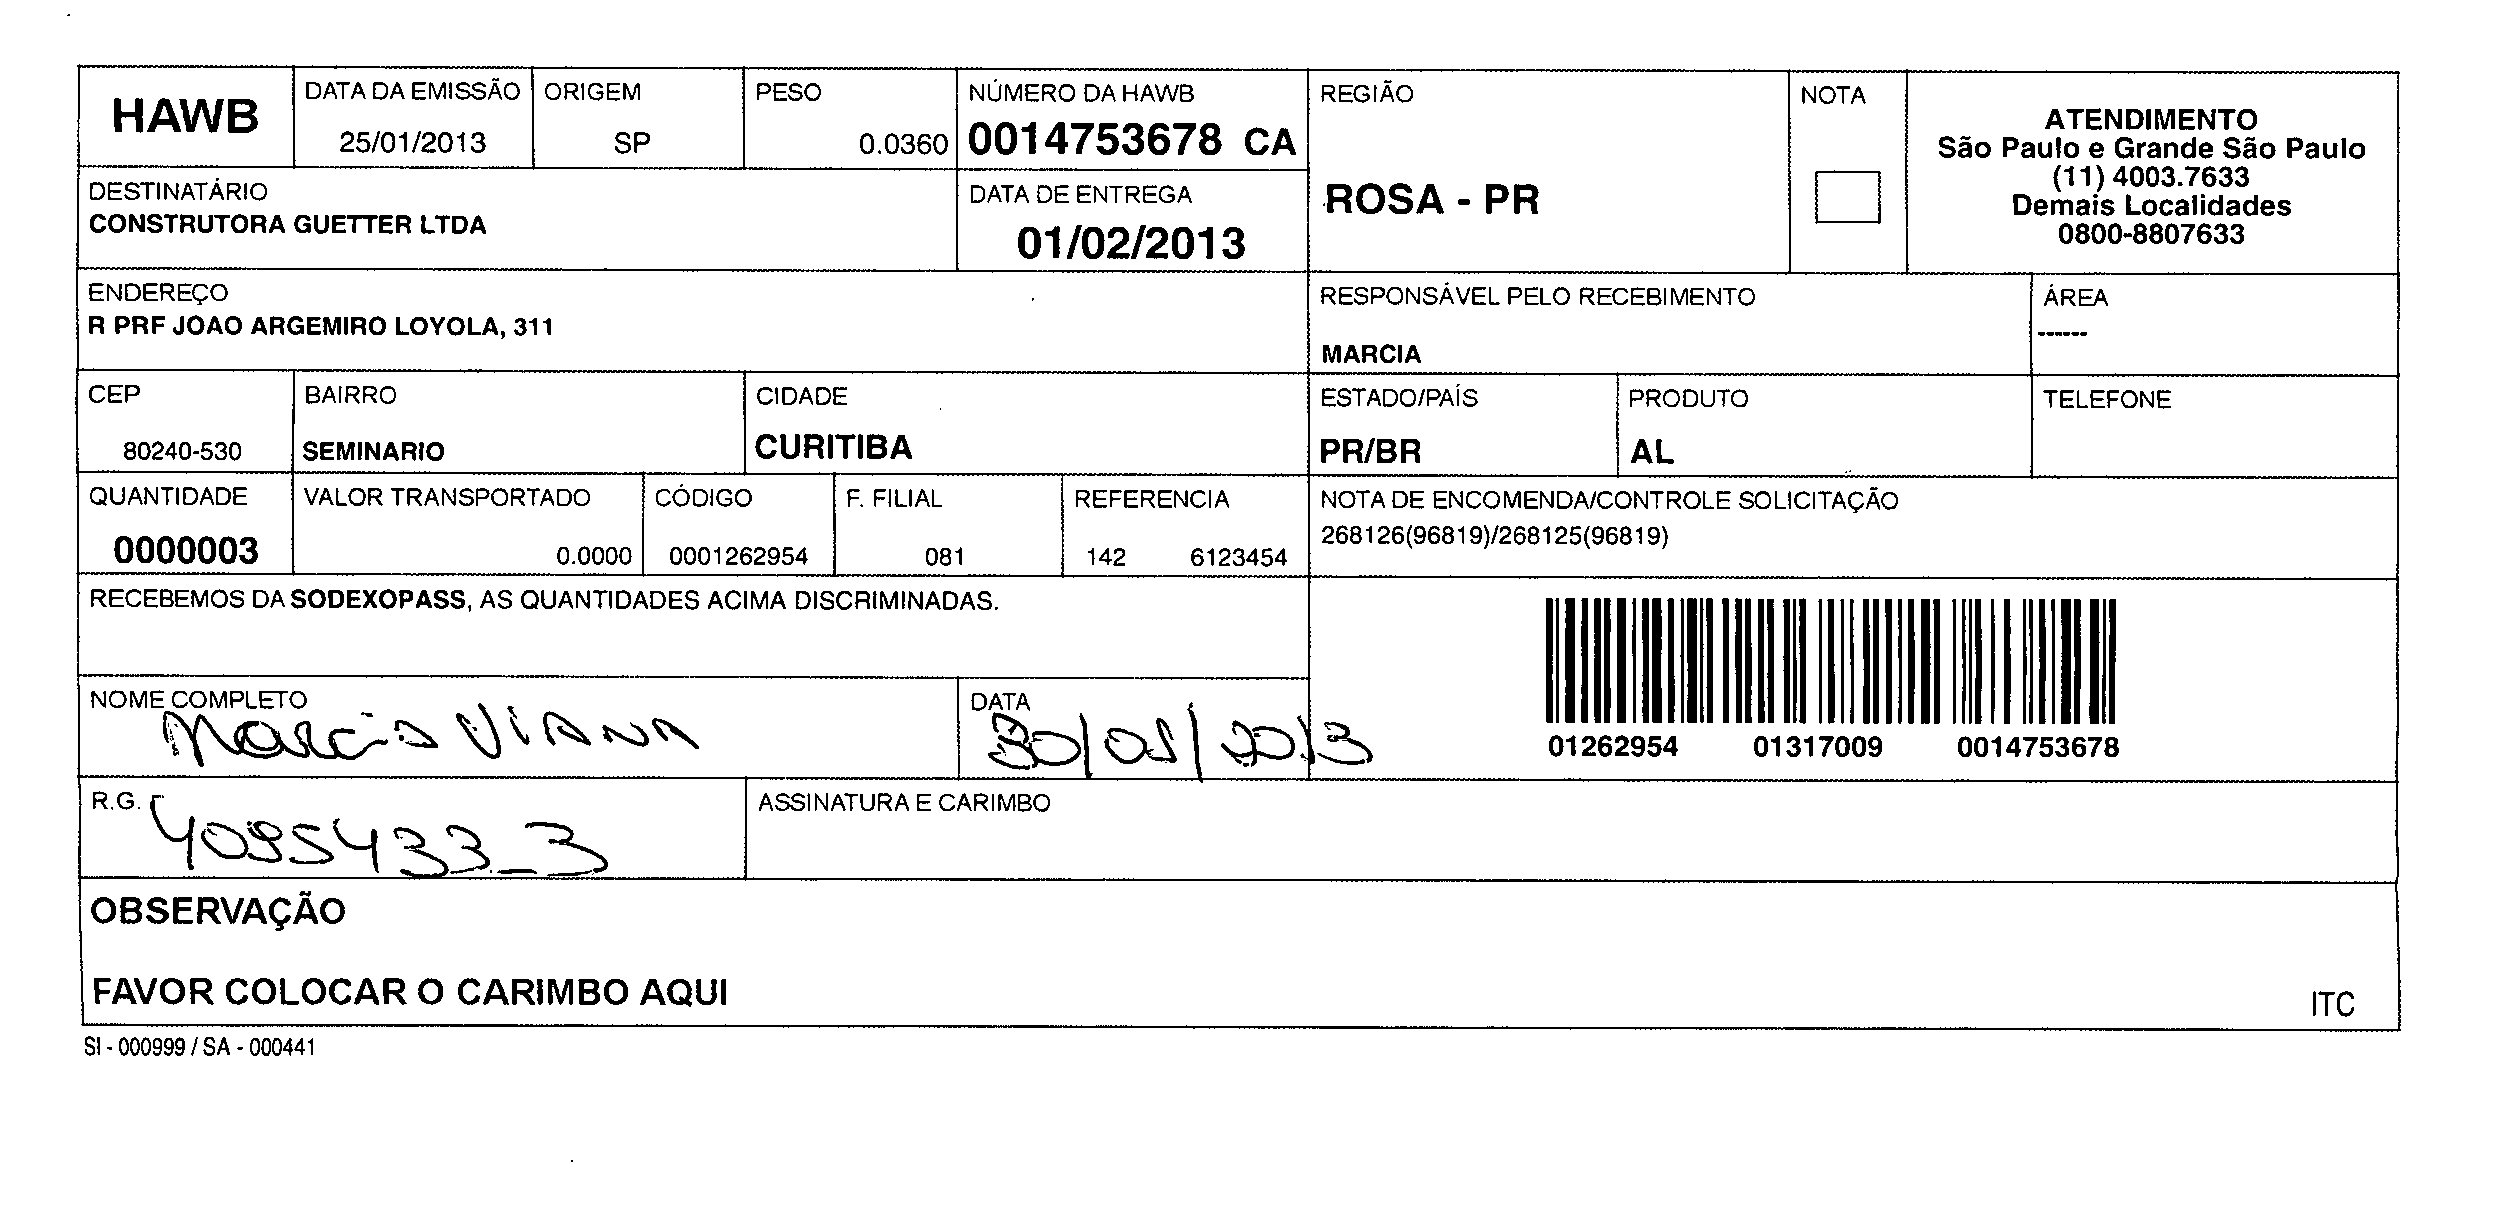 HAWB
DATA DA EMISSÃO
25/01/2013
ORIGEM
SP
PESO
0.0360
NÚMERO DA HAWB
0014753678 CA
REGIÃO
ROSA - PR
NOTA
ATENDIMENTO
São Paulo e Grande São Paulo
(11) 4003.7633
Demais Localidades
0800-8807633
DESTINATÁRIO
CONSTRUTORA GUETTER LTDA
DATA DE ENTREGA
01/02/2013
ENDEREÇO
R PRF JOAO ARGEMIRO LOYOLA, 311
RESPONSÁVEL PELO RECEBIMENTO
MARCIA
ÁREA
------
CEP
80240-530
BAIRRO
SEMINARIO
CIDADE
CURITIBA
ESTADO/PAÍS
PR/BR
PRODUTO
AL
TELEFONE
QUANTIDADE
0000003
VALOR TRANSPORTADO
0.0000
CÓDIGO
0001262954
F. FILIAL
081
REFERENCIA
142 6123454
NOTA DE ENCOMENDA/CONTROLE SOLICITAÇÃO
268126(96819)/268125(96819)
RECEBEMOS DA SODEXOPASS, AS QUANTIDADES ACIMA DISCRIMINADAS.
01262954 01317009 0014753678
NOME COMPLETO
Marcia VIANA
DATA
30/01/2013
R.G.
4095433-3
ASSINATURA E CARIMBO
OBSERVAÇÃO
FAVOR COLOCAR O CARIMBO AQUI
ITC
SI - 000999 / SA - 000441